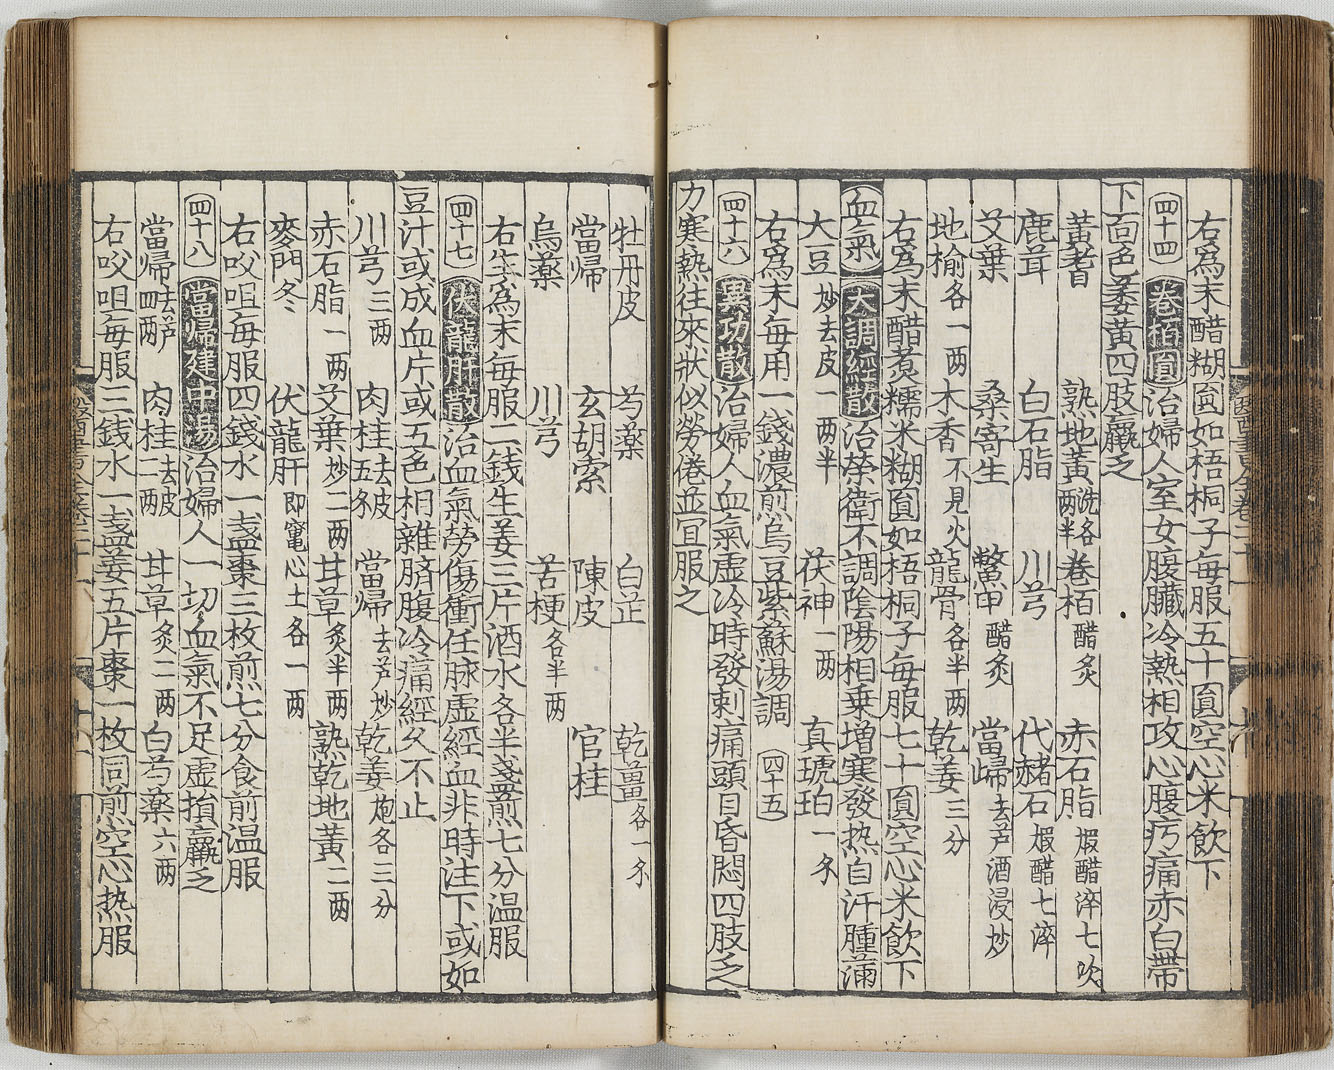 右為末醋糊圓如梧桐子每服五十圓空心米飲下
四十四 卷栢圓 治婦人室女腹臟冷熱相攻心腹㽲痛赤白帶
下面色萎黃四肢羸乏
黃耆 熟地黃洗各兩半 卷栢醋炙 赤石脂煆醋淬七次
鹿茸 白石脂 川芎 代赭石煆醋七淬
艾葉 桑寄生 鱉甲醋炙 當歸去芦酒浸炒
地榆各一两 木香不見火 龍骨各半两 乾姜三分
右為末醋煮糯米糊圓如梧桐子每服七十圓空心米飲下
血氣 大調經散 治榮衛不調陰陽相乗增寒發热自汗腫滿
大豆炒去皮一两半 茯神一两 真琥珀一㕛
右為末每用一錢濃煎烏豆紫蘇湯調 四十五
四十六 異功散 治婦人血氣虛冷時發刺痛頭目昏悶四肢乏
力寒熱往來狀似勞倦並宜服之
牡丹皮 芍藥 白芷 乾薑各一㕛
當歸 玄胡索 陳皮 官桂
烏藥 川芎 苦梗各半两
右生為末每服二錢生姜三片酒水各半盞煎七分温服
四十七 伏龍肝散 治血氣勞傷衝任脉虛經血非時注下或如
豆汁或成血片或五色相雜臍腹冷痛經久不止
川芎三两 肉桂去皮五㕛 當歸去芦炒 乾姜炮各三分
赤石脂一两 艾葉炒二两 甘草炙半两 熟乾地黃二两
麥門冬 伏龍肝即竈心土各一两
右㕮咀每服四錢水一盞棗三枚煎七分食前温服
四十八 當歸建中湯 治婦人一切血氣不足虛損羸乏
當歸去芦四两 肉桂去皮二两 甘草炙二两 白芍藥六两
右㕮咀每服三錢水一盞姜五片棗一枚同煎空心热服